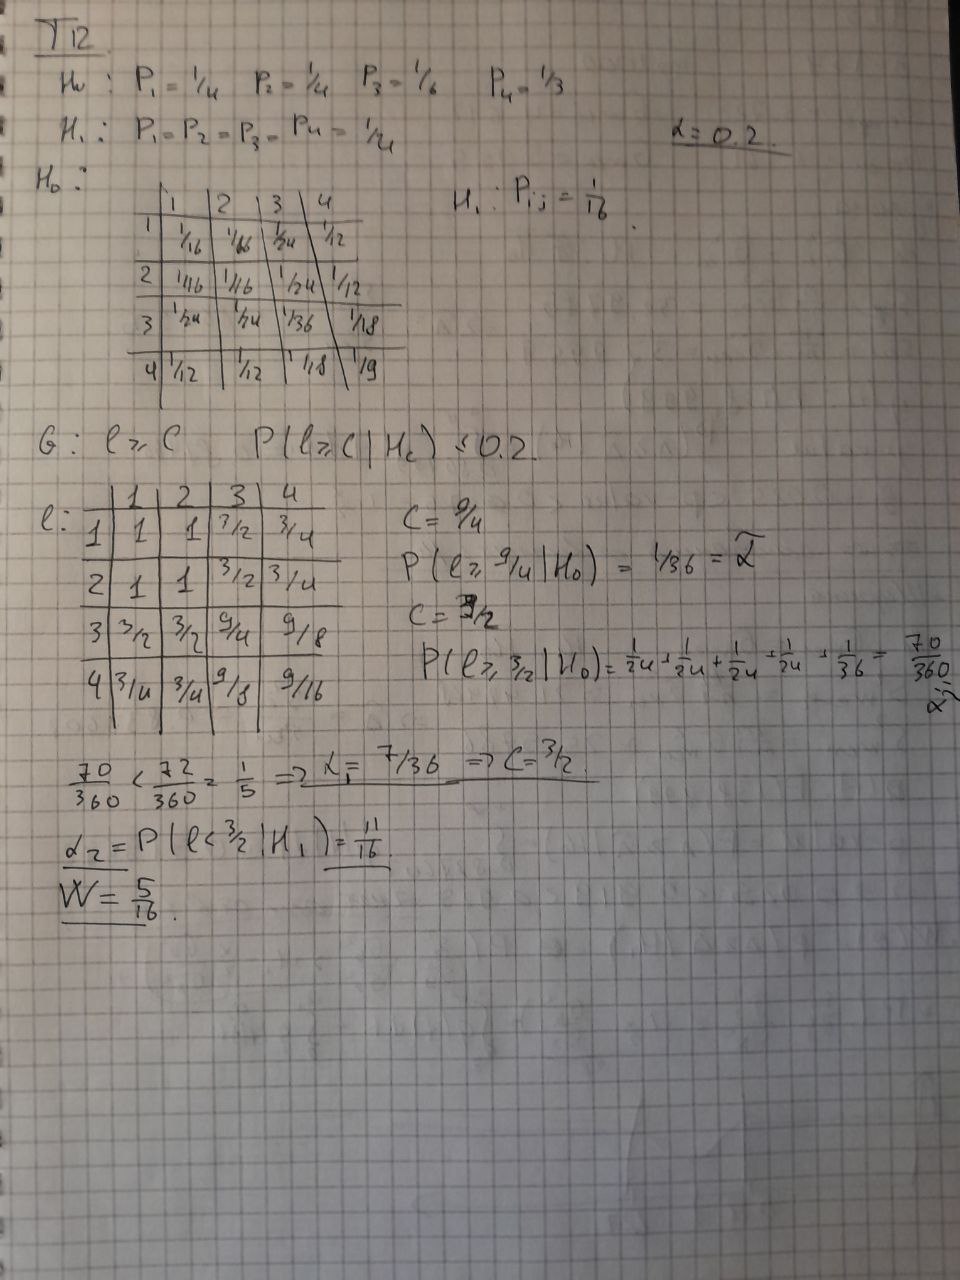 T12
H₀ : P₁ = 1/4 P₂ = 1/4 P₃ = 1/6 P₄ = 1/3
H₁ : P₁ = P₂ = P₃ = P₄ = 1/4 α = 0.2.
H₀ : H₁ : Pᵢⱼ = 1/16.
1 2 3 4
1 1/16 1/16 1/24 1/12
2 1/16 1/16 1/24 1/12
3 1/24 1/24 1/36 1/18
4 1/12 1/12 1/18 1/9
G : l ≥ C P(l ≥ C | H₀) ≤ 0.2.
l : 1 2 3 4
1 1 1 3/2 3/4
2 1 1 3/2 3/4
3 3/2 3/2 9/4 9/8
4 3/4 3/4 9/8 9/16
C = 9/4
P(l ≥ 9/4 | H₀) = 1/36 = α̃
C = 3/2
P(l ≥ 3/2 | H₀) = 1/24 + 1/24 + 1/24 + 1/24 + 1/36 = 70/360
70/360 < 72/360 = 1/5 => α₁ = 7/36 => C = 3/2
α₂ = P(l < 3/2 | H₁) = 11/16
W = 5/16.